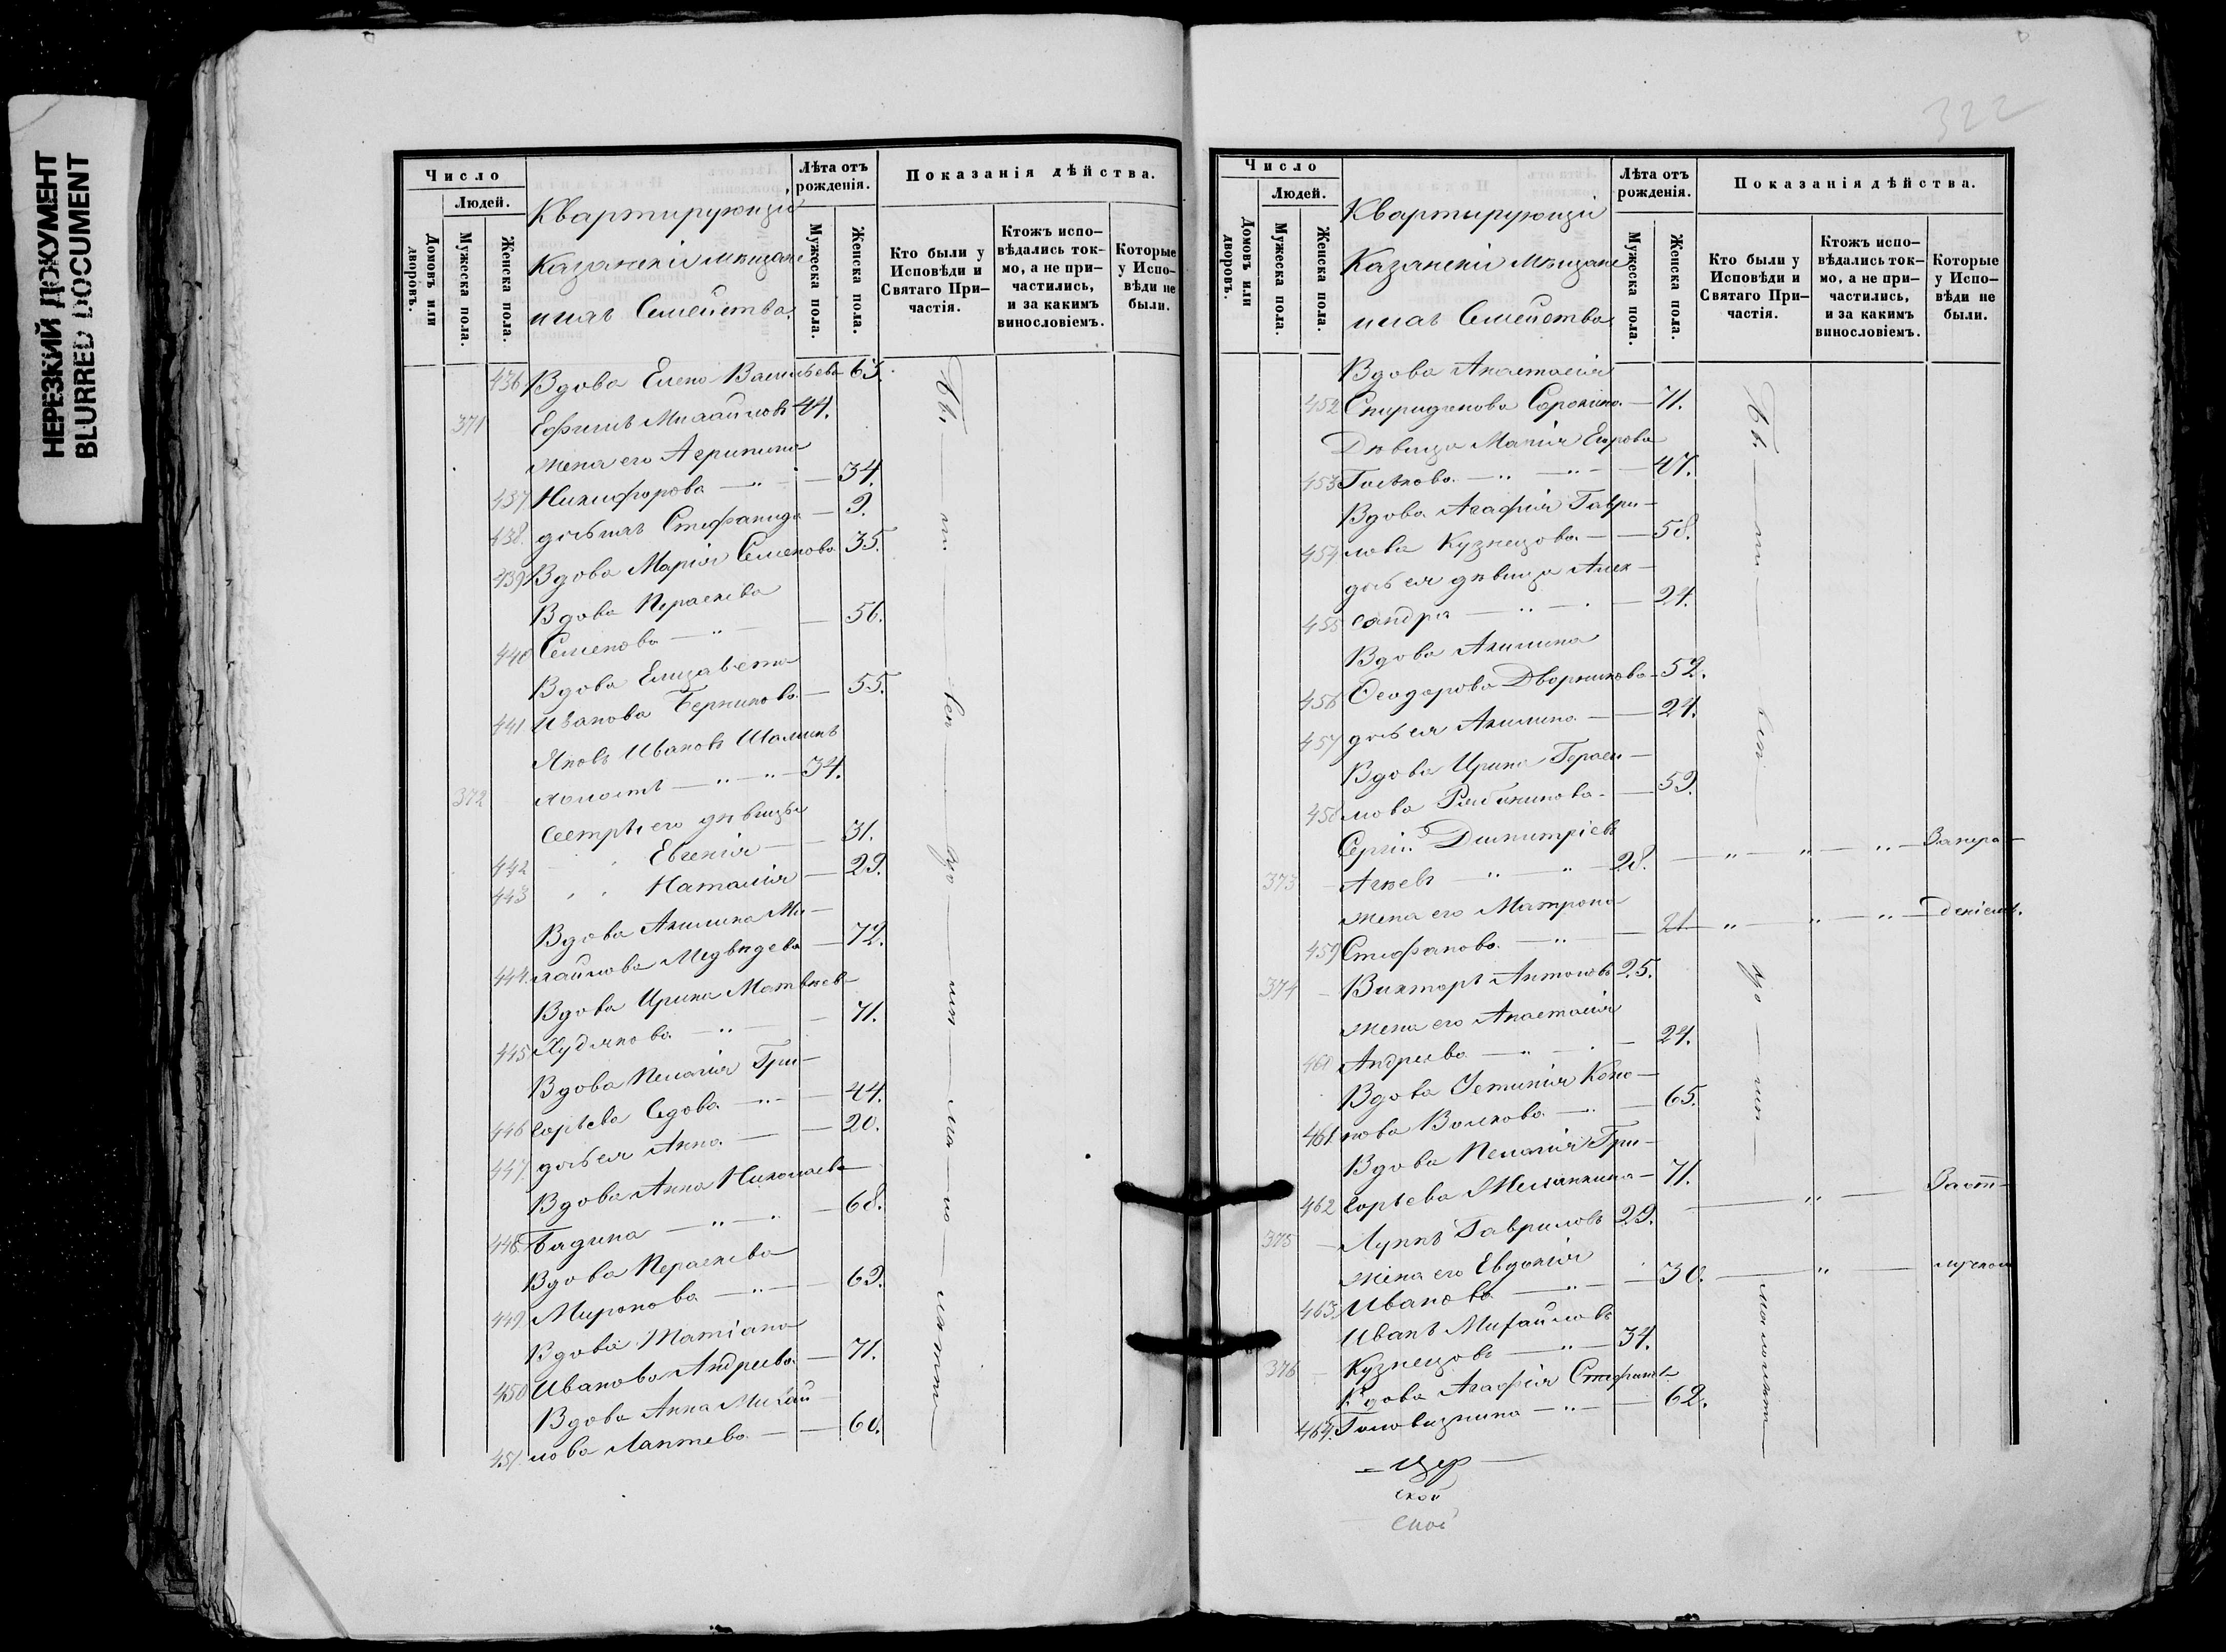 НЕРЕЗКИЙ ДОКУМЕНТ
BLURRED DOCUMENT
Число
Людей.
Домовъ или дворовъ.
Мужеска пола.
Женска пола.
Квартирующіе
Казанскіе Мѣщане
и ихъ Семейства.
Лѣта отъ рожденія.
Мужеска пола.
Женска пола.
Показанія дѣйства.
Кто были у Исповѣди и Святаго Причастія.
Ктожъ исповѣдались токмо, а не причастились, и за какимъ винословіемъ.
Которые у Исповѣди не были.
436 Вдова Елена Васильева 63.
371 Ефимъ Михайловъ 44.
Жена его Агрипина
437 Никифорова — " — 34.
438. дочь ихъ Стефанида — 9.
439 Вдова Марія Семенова 35.
Вдова Параскева
440 Семенова — " — 56.
Вдова Елизавета
441 Иванова — 55.
Яковъ Ивановъ
372 холостъ — " — " — 34.
Сестры его дѣвицы
442 Евгенія — 31.
443 Наталія — 29.
Вдова Акилина Ми-
444. хайлова Медвѣдева — 72.
Вдова Ирина Матвѣев-
445 Худякова — " — 71.
Вдова Пелагія Гри-
446 горьева Седова — " — 44.
447. дочь ея Анна — 20.
Вдова Анна Николаева
448. — " — " — 68.
Вдова Параскева
449 Миронова — " — 69.
Вдова Татіана
450 Иванова Андреева — 71.
Вдова Анна Михай-
451. лова Лаптева — 60.
322
Число
Людей.
Домовъ или дворовъ.
Мужеска пола.
Женска пола.
Квартирующіе
Казанскіе Мѣщане
и ихъ Семейства
Лѣта отъ рожденія.
Мужеска пола.
Женска пола.
Показанія дѣйства.
Кто были у Исповѣди и Святаго Причастія.
Ктожъ исповѣдались токмо, а не причастились, и за какимъ винословіемъ.
Которые у Исповѣди не были.
Вдова Анастасія
452 Спиридонова Сорокина — 71.
Дѣвица Марія Егорова
453 — " — " — 47.
Вдова Агафія Гаври-
454 лова Кузнецова — 58.
дочь ея дѣвица Алек-
455 сандра — " — 24.
Вдова Акилина
456 Ѳеодорова Дворникова — 52.
457 дочь ея Акилина — 24.
Вдова Ирина Гераси-
458 мова — 59.
Сергій Димитріевъ
373 Агѣевъ — " — " — 28. — " — " — " — За нера-
Жена его Матрона
459 Стефанова — " — 21 — " — " — " — деніемъ.
374 Викторъ Антоновъ 25.
Жена его Анастасія
460 Андреева — " — 24.
Вдова Устинія Коно-
461. нова Волкова — " — 65.
Вдова Пелагія Гри-
462 горьева — 71.
375 Гавриловъ 29. — " — За от-
Жена его Евдокія
463. Иванова — " — 30. — " — лучкою
Иванъ Михайловъ
376 Кузнецовъ — " — 34.
Вдова Агафія Стефанов-
464. Головизнина — " — 62.
ской